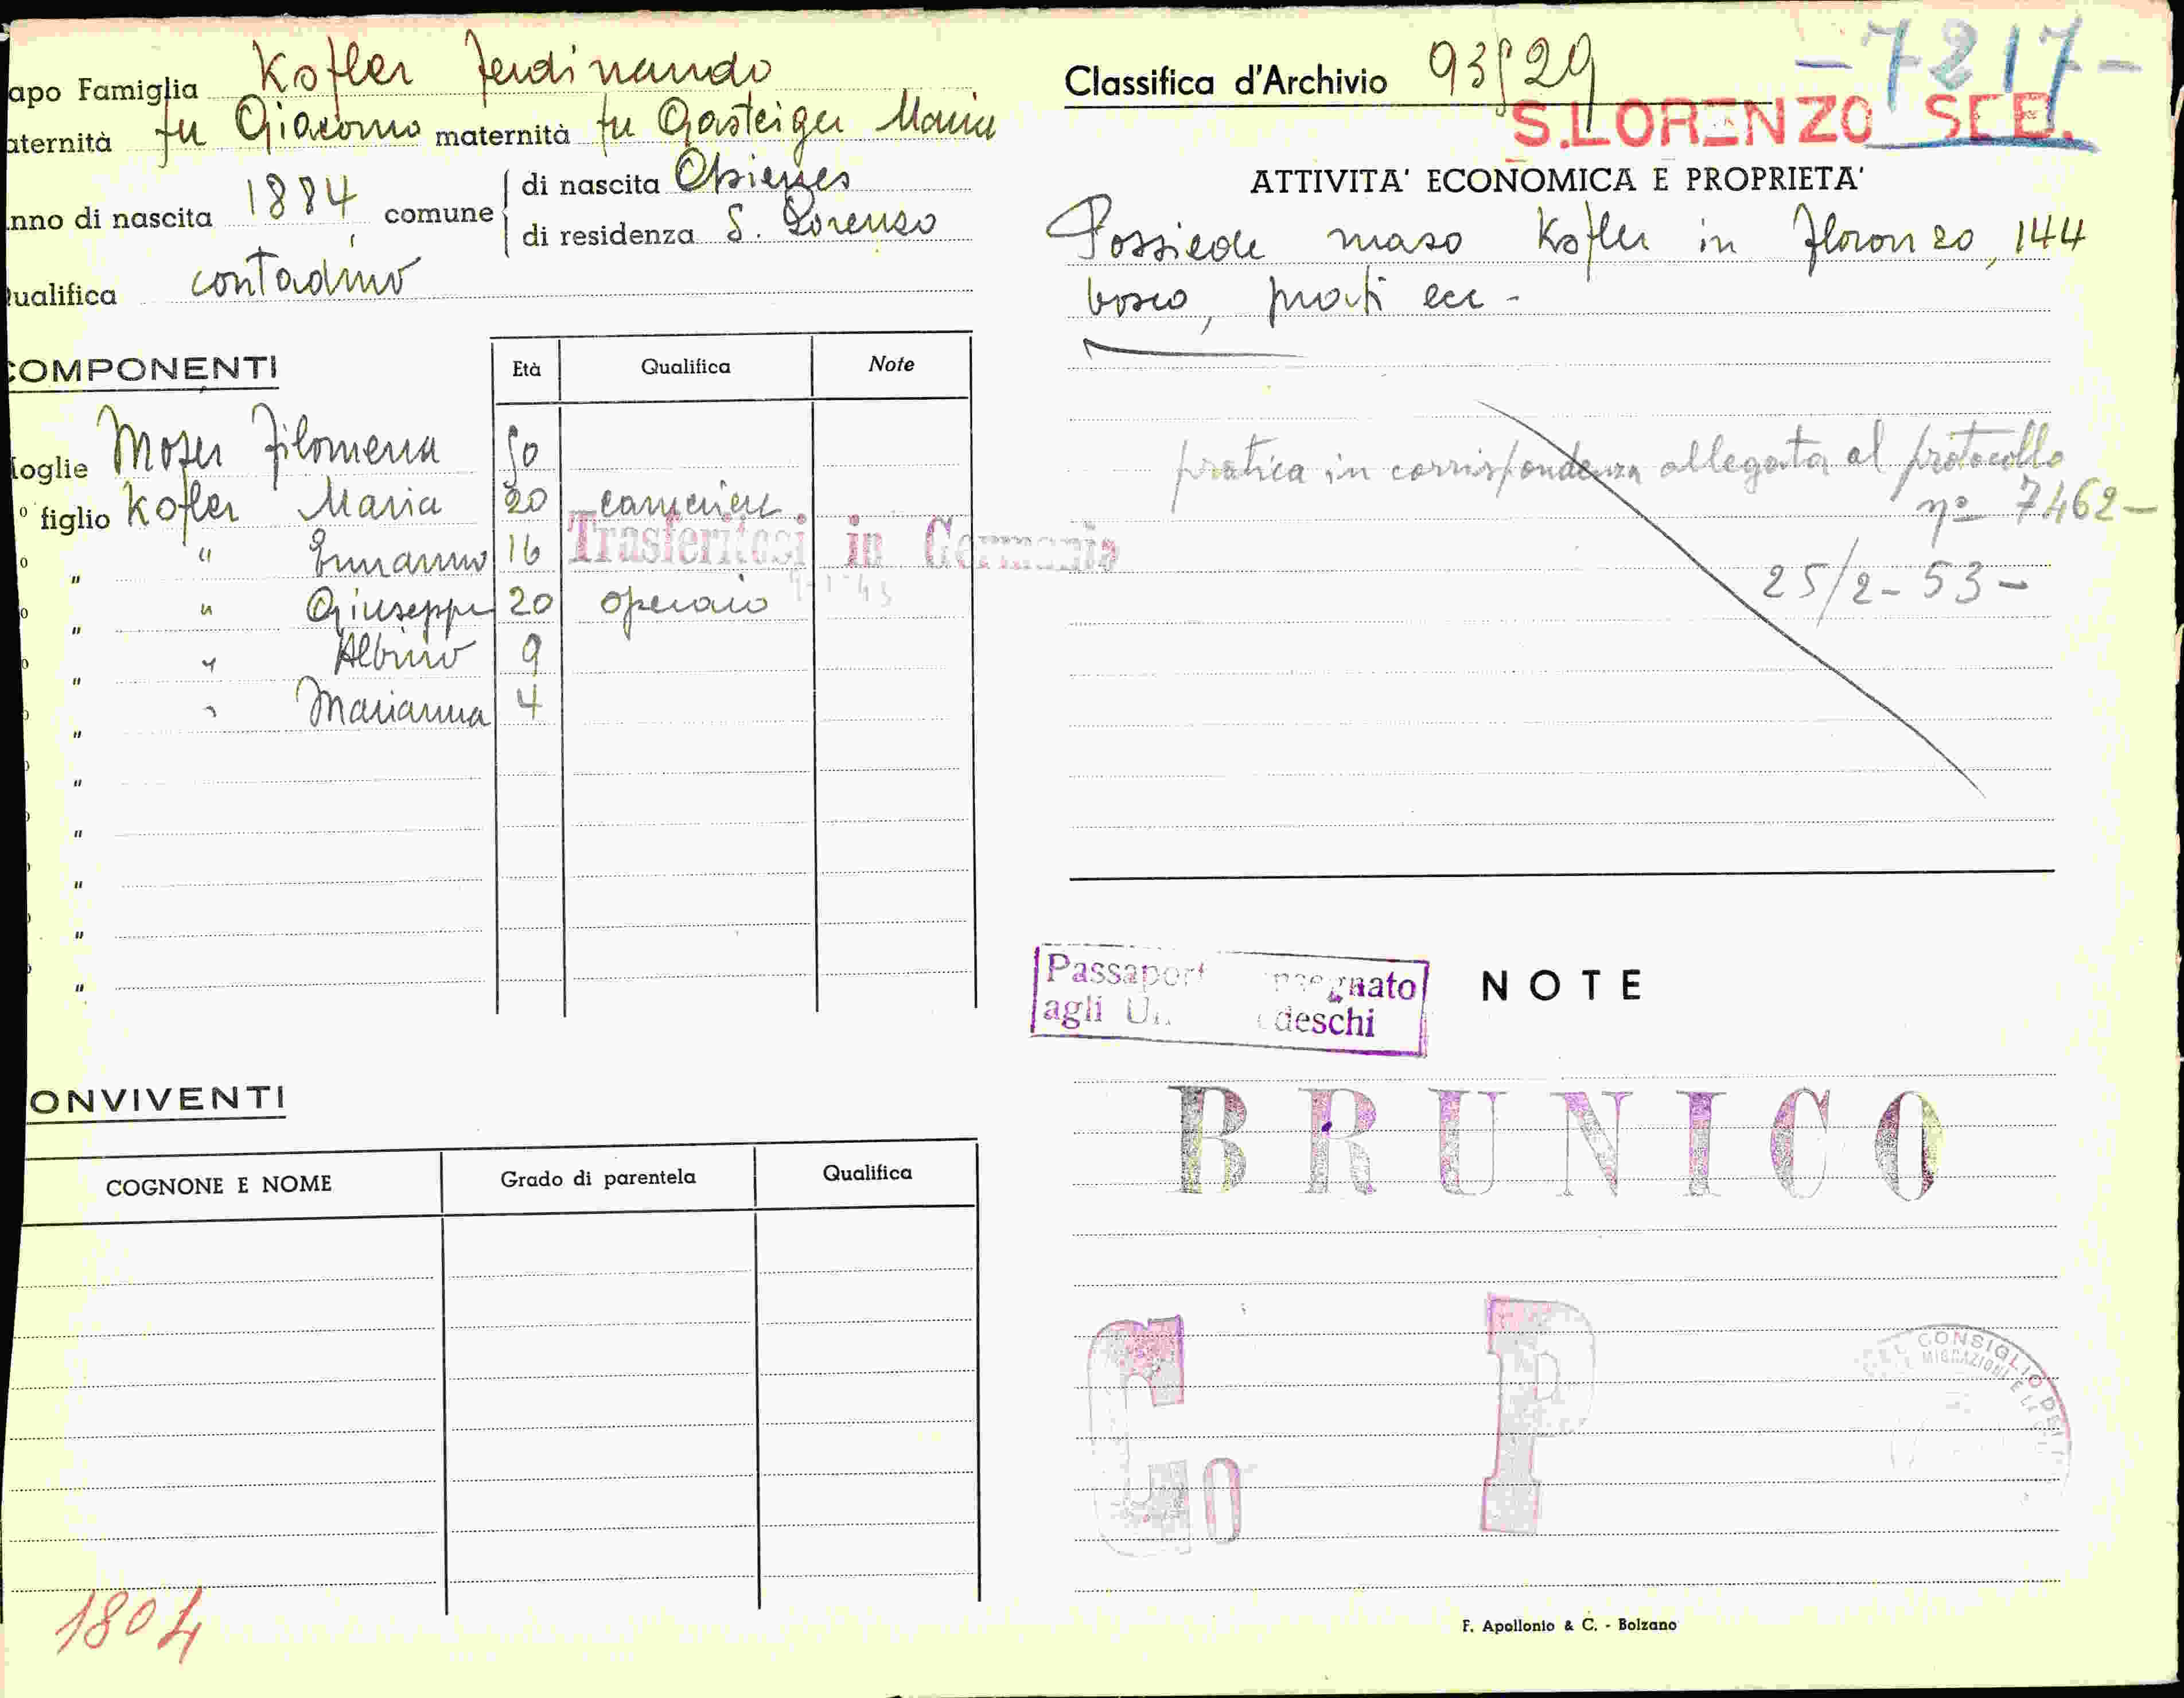 apo Famiglia Kofler Ferdinando
aternità fu Giacomo maternità fu Gasteiger Maria
nno di nascita 1884, comune di nascita
di residenza S. Lorenzo
ualifica contadino
COMPONENTI Età Qualifica Note
oglie Moser Filomena 50
° figlio Kofler Maria 20 cameriere
Trasferitosi in Germania
o " " Ermanno 16
o " " Giuseppe 20 operaio
o " " Albino 9
" " Marianna 4
"
"
"
"
"
ONVIVENTI
COGNONE E NOME Grado di parentela Qualifica
1804
Classifica d'Archivio 93/29 -7217-
S.LORENZO SEB.
ATTIVITA' ECONOMICA E PROPRIETA'
Possiede maso Kofler in 144
bosco, prati ecc -
pratica in corrispondenza allegata al protocollo
nº 7462-
25/2-53-
Passaport nsegnato
agli U deschi
NOTE
BRUNICO
P
CONSIGLIO DEI
MIGRAZIONI E
F. Apollonio & C. - Bolzano